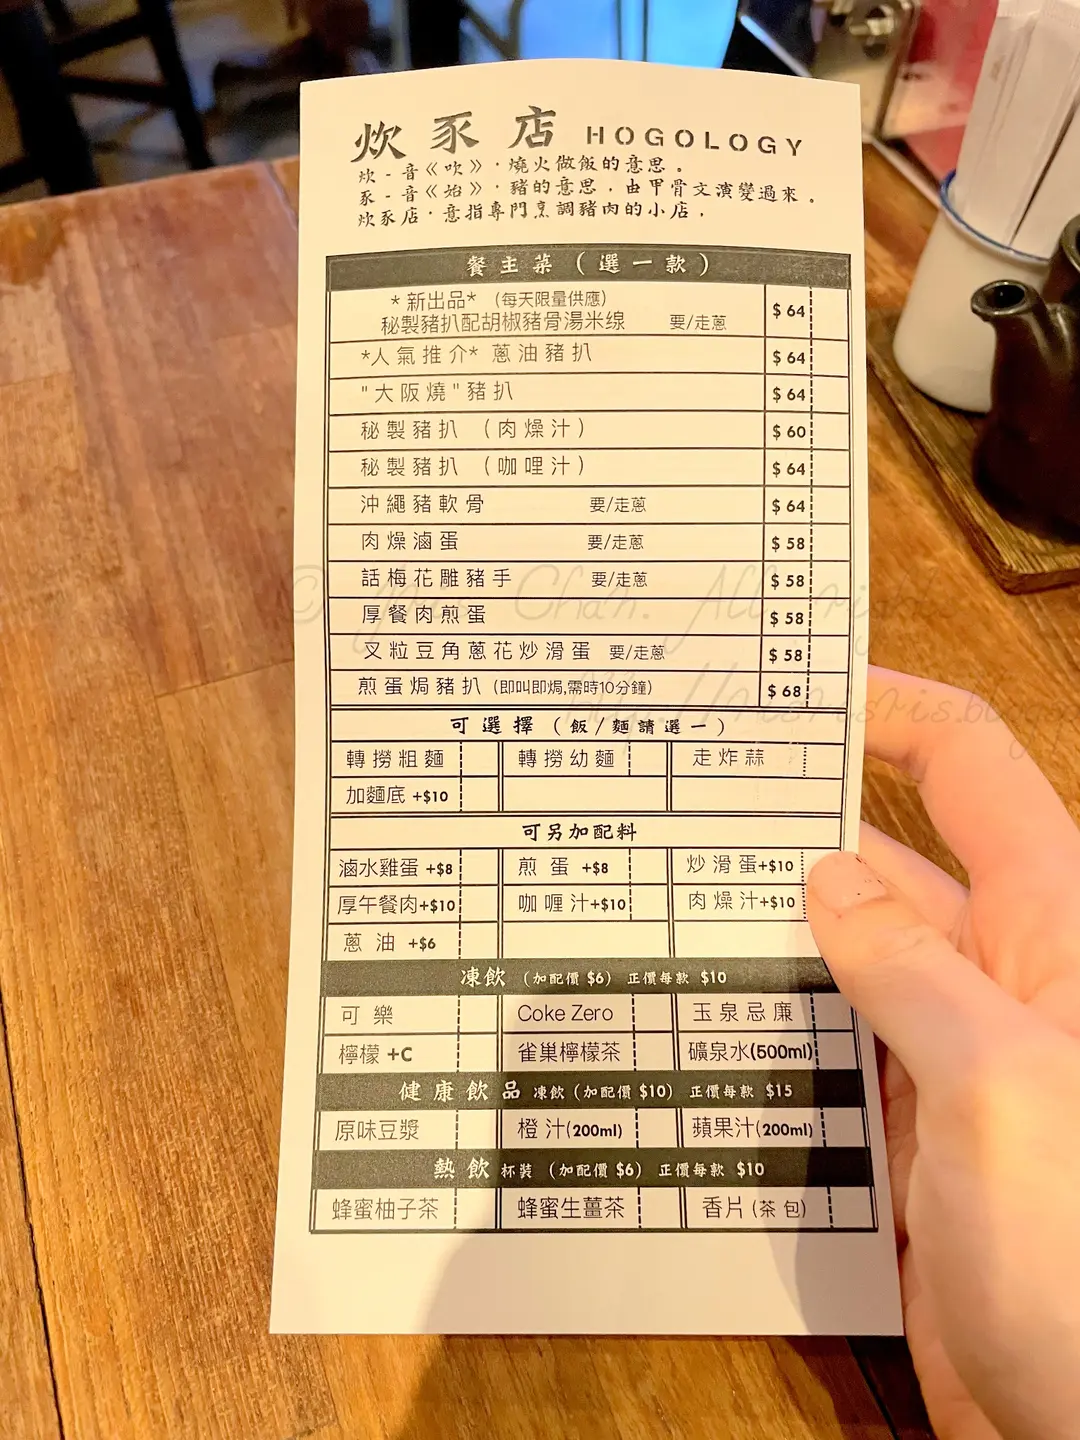 炊豕店 HOGOLOGY
炊 - 音《吹》·燒火做飯的意思。
豕 - 音《始》·豬的意思，由甲骨文演變過來。
炊豕店·意指專門烹調豬肉的小店，
餐主菜（選一款）
*新出品* (每天限量供應)
秘製豬扒配胡椒豬骨湯米线 要/走蔥 $64
*人氣推介* 蔥油豬扒 $64
"大阪燒"豬扒 $64
秘製豬扒 (肉燥汁) $60
秘製豬扒 (咖哩汁) $64
沖繩豬軟骨 要/走蔥 $64
肉燥滷蛋 要/走蔥 $58
話梅花雕豬手 要/走蔥 $58
厚餐肉煎蛋 $58
叉粒豆角蔥花炒滑蛋 要/走蔥 $58
煎蛋焗豬扒 (即叫即焗,需時10分鐘) $68
可選擇（飯/麵請選一）
轉撈粗麵 轉撈幼麵 走炸蒜
加麵底 +$10
可另加配料
滷水雞蛋 +$8 煎蛋 +$8 炒滑蛋+$10
厚午餐肉+$10 咖喱汁+$10 肉燥汁+$10
蔥油 +$6
凍飲 (加配價 $6) 正價每款 $10
可樂 Coke Zero 玉泉忌廉
檸檬 +C 雀巢檸檬茶 礦泉水(500ml)
健康飲品 凍飲(加配價 $10) 正價每款 $15
原味豆漿 橙汁(200ml) 蘋果汁(200ml)
熱飲 杯裝 (加配價 $6) 正價每款 $10
蜂蜜柚子茶 蜂蜜生薑茶 香片(茶包)